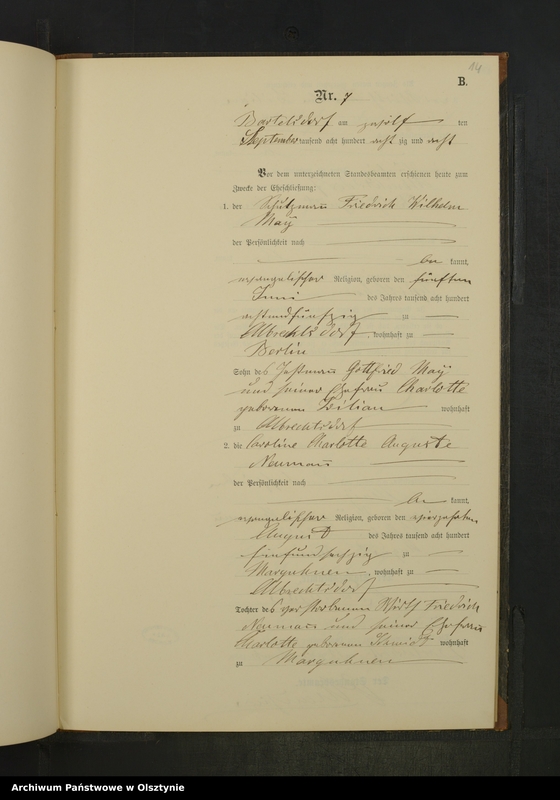 14
B.
Nr. 7
Bartelsdorf am zwölf ten
September tausend acht hundert acht zig und acht
Vor dem unterzeichneten Standesbeamten erschienen heute zum
Zwecke der Eheschließung:
1. der Schutzmann Friedrich Wilhelm
May
der Persönlichkeit nach
be kannt,
evangelischer Religion, geboren den fünften
Juni des Jahres tausend acht hundert
achtundfünfzig zu
Albrechtsdorf, wohnhaft zu
Berlin
Sohn des Gottfried May
und seiner Ehefrau Charlotte
geborenen wohnhaft
zu Albrechtsdorf
2. die Caroline Charlotte Auguste
Neumann
der Persönlichkeit nach
be kannt,
evangelischer Religion, geboren den vierzehnten
August des Jahres tausend acht hundert
fünfundsechzig zu
Marguhnen, wohnhaft zu
Albrechtsdorf
Tochter des verstorbenen Wirth Friedrich
Neumann und seiner Ehefrau
Charlotte geborenen Schmidt wohnhaft
zu Marguhnen
Archiwum Państwowe w Olsztynie